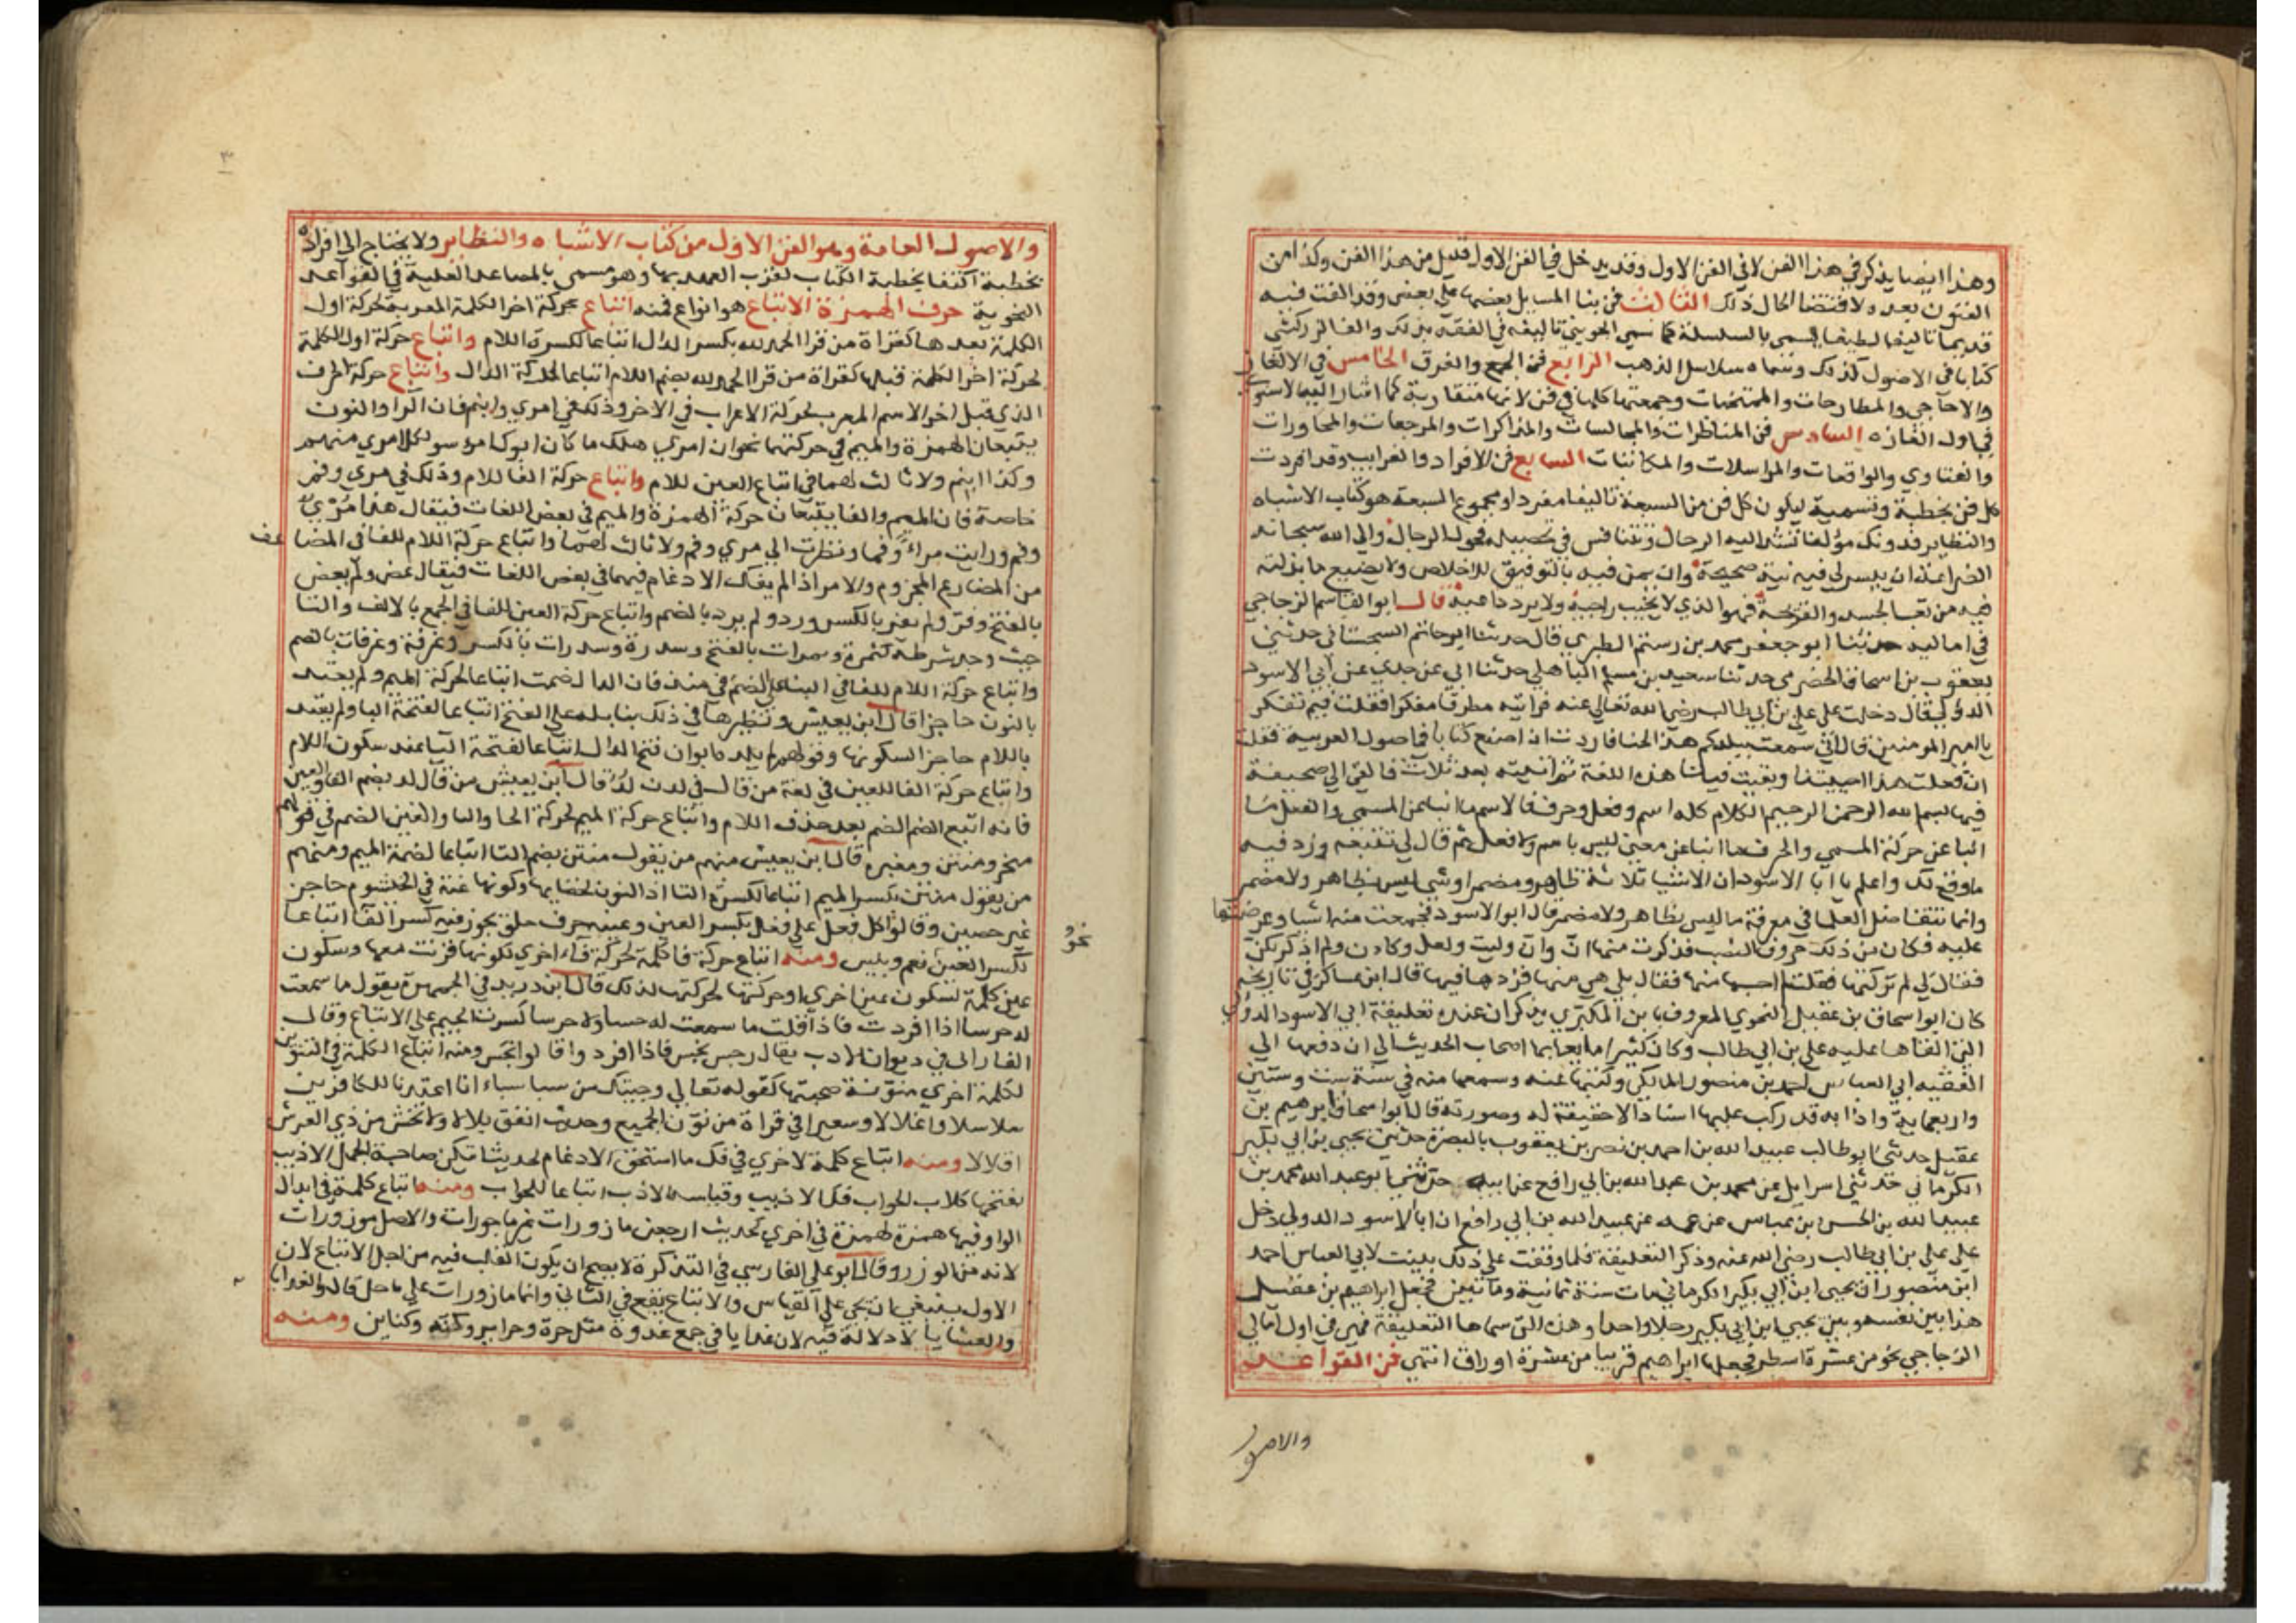 وهذا ايضا يذكر في هذا الفن لا في الفن الاول وقد يدخل في الفن الاول قليل من هذا الفن وكذا من
الفنون بعده لاقتضا الحال ذلك الثالث فن بنا المسايل بعضها على بعض وقد الفت فيه
قديما تاليفا لطيفا يسمى بالسلسلة كما سمى الجويني تاليفه في الفقه بذلك والف الزركشي
كتابا في الاصول كذلك وسماه سلاسل الذهب الرابع فن الجمع والفرق الخامس في الالغاز
والاحاجي والمطارحات والممتحنات وجمعتها كلها في فن لانها متقاربة كما اشار اليه الاسنوي
في اول الغازه السادس فن المناظرات والمجالسات والمذاكرات والمراجعات والمحاورات
والفتاوي والواقعات والمراسلات والمكاتبات السابع فن الافراد والغرايب وقد افردت
كل فن بخطبة وتسمية ليكون كل فن من السبعة تاليفا مفردا ومجموع السبعة هو كتاب الاشباه
والنظاير فدونك مؤلفا تشد اليه الرحال وتتنافس في تحصيله فحول الرجال والى الله سبحانه
الضراعة ان ييسر لي فيه نية صحيحة وان يمن فيه بالتوفيق للاخلاص ولا يضيع ما بذلته
فيه من تعب الجسد والقريحة فهو الذي لا يخيب راجيه ولا يرد داعيه قال ابو القاسم الزجاجي
في اماليه حدثنا ابو جعفر محمد بن رستم الطبري قال حدثنا ابو حاتم السجستاني حدثني
يعقوب بن اسحاق الحضرمي حدثنا سعيد بن مسلم الباهلي حدثنا ابي عن جدي عن ابي الاسود
الدؤلي قال دخلت على علي بن ابي طالب رضي الله تعالى عنه فرايته مطرقا مفكرا فقلت فيم تفكر
يا امير المومنين قال اني سمعت ببلدكم هذا لحنا فاردت ان اصنع كتابا في اصول العربية فقلت
ان فعلت هذا احييتنا وبقيت فينا هذه اللغة ثم اتيته بعد ثلاث فالقى الي صحيفة
فيها بسم الله الرحمن الرحيم الكلام كله اسم وفعل وحرف فالاسم ما انبا عن المسمى والفعل ما
انبا عن حركة المسمى والحرف ما انبا عن معنى ليس باسم ولا فعل ثم قال لي تتبعه وزد فيه
ما وقع لك واعلم يا ابا الاسود ان الاشيا ثلاثة ظاهر ومضمر وشي ليس بظاهر ولا مضمر
وانما تتفاضل العلما في معرفة ما ليس بظاهر ولا مضمر قال ابو الاسود فجمعت منه اشيا وعرضتها
عليه فكان من ذلك حروف النصب فذكرت منها ان وان وليت ولعل وكان ولم اذكر لكن
فقال لي لم تركتها فقلت لم احسبها منها فقال بلى هي منها فزدها فيها قال ابن عساكر في تاريخه
كان ابو اسحاق بن عقيل النحوي المعروف بابن المكبري يذكر ان عنده تعليقة ابي الاسود الدؤلي
التي القاها عليه علي بن ابي طالب وكان كثيرا ما يعد بها اصحاب الحديث الى ان دفعها الى
الفقيه ابي العباس احمد بن منصور المالكي وكتبها عنه وسمعها منه في سنة ست وستين
واربعماية واذا به قد ركب عليها اسنادا لا حقيقة له وصورته قال ابو اسحاق ابرهيم بن
عقيل حدثني ابو طالب عبيد الله بن احمد بن نصر بن يعقوب بالبصرة حدثني يحيى بن ابي بكير
الكرماني حدثني اسرايل عن محمد بن عبد الله بن ابي رافع عن ابيه حدثني ابو عبد الله محمد بن
عبيد الله بن الحسن بن عباس عن عمه عن عبيد الله بن ابي رافع ان ابا الاسود الدولي دخل
على علي بن ابي طالب رضي الله عنه وذكر التعليقة فلما وقفت على ذلك بينت لابي العباس احمد
ابن منصور ان يحيى ابن ابي بكير الكرماني مات سنة ثمانية ومائتين فجعل ابراهيم بن عقيل
هذا بين نفسه وبين يحيى ابن ابي بكير رجلا واحدا وهذه التي سماها التعليقة فهي في اول امالي
الزجاجي نحو من عشرة اسطر فجعلها ابراهيم قريبا من عشرة اوراق انتهى فن القواعد
والاصول
والاصول العامة وهو الفن الاول من كتاب الاشباه والنظاير ولا يحتاج الى افراده
بخطبة اكتفا بخطبة الكتاب لقرب العهد بها وهو مسمى بالمصاعد العلية في القواعد
النحوية حرف الهمزة الاتباع هو انواع فمنه اتباع حركة اخر الكلمة المعربة لحركة اول
الكلمة بعدها كقراة من قرا الحمد لله بكسر الدال اتباعا لكسرة اللام واتباع حركة اول الكلمة
لحركة اخر الكلمة قبلها كقراة من قرا الحمد لله بضم اللام اتباعا لحركة الدال واتباع حركة الحرف
الذي قبل اخر الاسم المعرب لحركة الاعراب في الاخر وذلك في امرئ وابنم فان الرا والنون
يتبعان الهمزة والميم في حركتهما نحو ان امرؤ هلك ما كان ابوك امرا سوء لكل امرئ منهم
وكذا ابنم ولا ثالث لهما في اتباع العين للام واتباع حركة الفا للام وذلك في مرء وفم
خاصة فان الميم والفا يتبعان حركة الهمزة والميم في بعض اللغات فيقال هذا مرء
وفم ورايت مراء وفما ونظرت الى مرء وفم ولا ثالث لهما واتباع حركة اللام للفا في المضاعف
من المضارع المجزوم والامر اذا لم يفك الادغام فيهما في بعض اللغات فيقال عض ولم يعض
بالفتح وفر ولم يفر بالكسر ورد ولم يرد بالضم واتباع حركة العين للفا في الجمع بالالف والتا
حيث وجد شرطه كتمرة وتمرات بالفتح وسدرة وسدرات بالكسر وغرفة وغرفات بالضم
واتباع حركة اللام للفا في البنا على الضم في منذ فان الذال ضمت اتباعا لحركة الميم ولم يعتد
بالنون حاجزا قال ابن يعيش ونظيرها في ذلك بنا بله على الفتح اتباعا لفتحة البا ولم يعتد
باللام حاجزا لسكونها وقولهم لم يلده ابوان فتح الدال اتباعا لفتحة اليا عند سكون اللام
واتباع حركة الفا للعين في لغة من قال في لدن لد قال ابن يعيش من قال لد بضم الفا والعين
فانه اتبع الضم الضم بعد حذف اللام واتباع حركة الميم لحركة الخا والتا والغين الضم في قولهم
منخر ومنتن ومغيره قال ابن يعيش منهم من يقول منتن بضم التا اتباعا لضمة الميم ومنهم
من يقول منتن بكسر الميم اتباعا لكسرة التا اذ النون لخفايها وكونها غنة في الخيشوم حاجز
غير حصين وقالوا كل فعل على فعل بكسر العين وعينه حرف حلق يجوز فيه كسر الفا اتباعا
نحو
لكسر العين نعم وبئس ومنه اتباع حركة فا كلمة لحركة فاء اخرى لكونها قرنت معها وسكون
عين كلمة لسكون عين اخرى او حركتها لحركتها لذلك قال ابن دريد في الجمهرة يقول ما سمعت
له جرسا اذا افردت فاذا قلت ما سمعت له حسا ولا جرسا كسرت الجيم على الاتباع وقال
الفارابي في ديوان الادب يقال رجس نجس فاذا افردوا قالوا نجس ومنه اتباع الكلمة في التنوين
لكلمة اخرى منونة صحبتها كقوله تعالى وجيتك من سبا سباء انا اعتدنا للكافرين
سلاسلا واغلالا وسعيرا في قراة من نون الجميع وحديث انفق بلالا ولا تخش من ذي العرش
اقلالا ومنه اتباع كلمة لاخرى في فك ما استحق الادغام لحديث ايتكن صاحبة الجمل الادبب
تنبحها كلاب الحواب فك الادبب وقياسه الادب اتباعا للحواب ومنه اتباع كلمة في ابدال
الواو فيها همزة لهمزة في اخرى كحديث ارجعن مازورات غير ماجورات والاصل موزورات
لانه من الوزر وقال ابو علي الفارسي في التذكرة لا يصح ان يكون القلب فيه من اجل الاتباع لان
الاول ينبغي ان يجي على القياس والاتباع يقع في الثاني وانما مازورات على ياجل قال والغدايا
والعشايا لا دلالة فيه لان غدايا في جمع غدوة مثل حرة وحراير وكنة وكناين ومنه